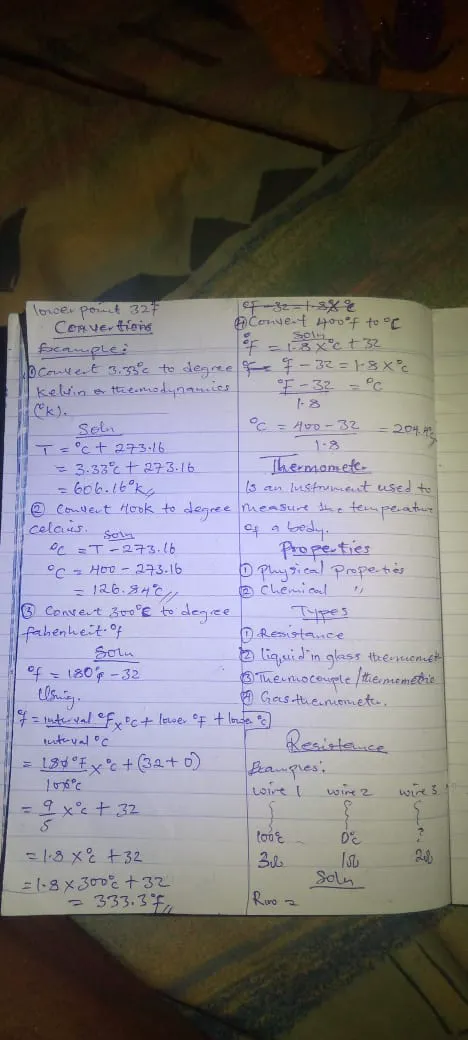 lower point 32f
Convertions
Example:
① Convert 3.33°c to degree
Kelvin or thermodynamics
(°k).
Soln
T = °c + 273.16
= 3.33°c + 273.16
= 606.16°k
② Convert 400k to degree
Celcius.
Soln
°C = T - 273.16
°C = 400 - 273.16
= 126.84°C
③ Convert 300°C to degree
fahenheit °f
Soln
°f = 180°f - 32
Using.
°f = interval °F x °c + lower °F + lower °c
interval °c
= 180°F x °c + (32 + 0)
100°c
= 9 x °c + 32
5
= 1.8 x °c + 32
= 1.8 x 300°c + 32
= 333.3°f
°F - 32 = 1.8 x °c
④ Convert 400°f to °C
Soln
°F = 1.8 x °c + 32
°F - 32 = 1.8 x °c
°F - 32 = °C
1.8
°C = 400 - 32 = 204.4°c
1.8
Thermomete
Is an instrument used to
measure the temperature
of a body.
Properties
① Physical Properties
② Chemical "
Types
① Resistance
② liquid in glass thermomet
③ Thermocouple / thermometric
④ Gas thermometer.
Resistance
Examples:
wire 1 wire 2 wire 3
100°c 0°c ?
3Ω 1Ω 2Ω
Soln
R100 =